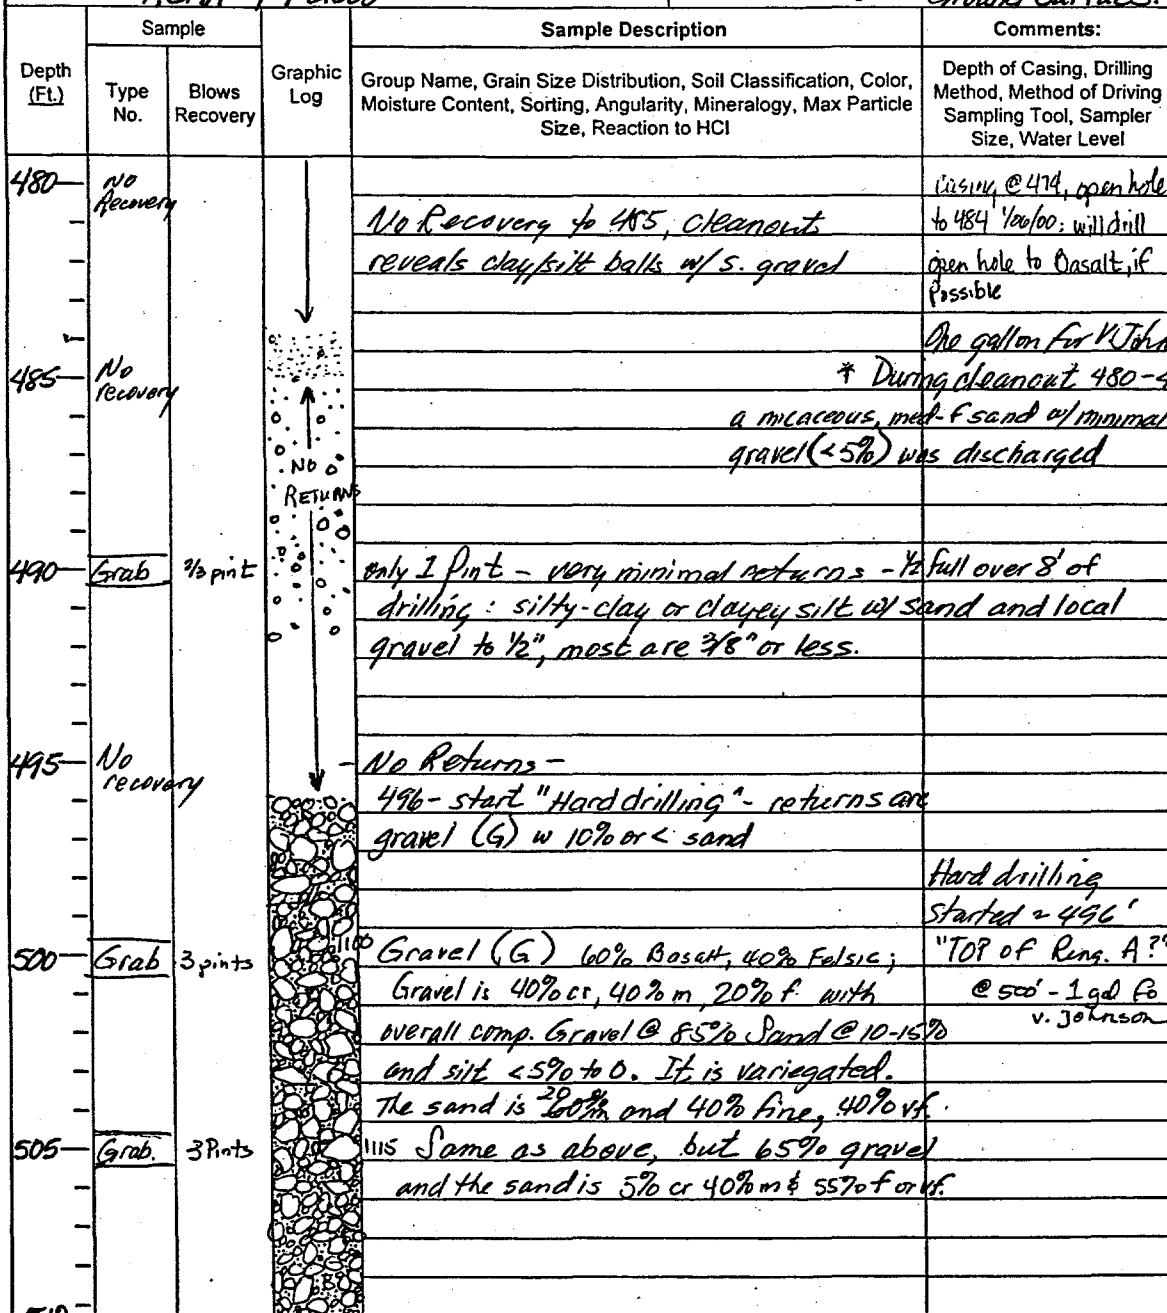 Ground Surface
Sample
Sample Description
Comments:
Depth
(Ft.)
Type
No.
Blows
Recovery
Graphic
Log
Group Name, Grain Size Distribution, Soil Classification, Color,
Moisture Content, Sorting, Angularity, Mineralogy, Max Particle
Size, Reaction to HCl
Depth of Casing, Drilling
Method, Method of Driving
Sampling Tool, Sampler
Size, Water Level
480
No
Recovery
No Recovery to 485, cleanout
reveals clay/silt balls w/ s. gravel
Casing @ 474, open hole
to 484 : will drill
open hole to Basalt, if
Possible
One gallon for V. John
485
No
recovery
* During cleanout 480-4
a micaceous, med-F sand w/ minimal
gravel (<5%) was discharged
NO
RETURNS
490
Grab
2/3 pint
only 1 Pint - very minimal returns - 1/2 full over 8' of
drilling : silty-clay or clayey silt w/ sand and local
gravel to 1/2", most are 3/8" or less.
495
No
recovery
No Returns -
496 - start "Hard drilling" - returns are
gravel (G) w 10% or < sand
Hard drilling
Started ~ 496'
500
Grab
3 pints
Gravel (G) 60% Basalt, 40% Felsic;
Gravel is 40% cr, 40% m, 20% f. with
overall comp. Gravel @ 85% Sand @ 10-15%
and silt <5% to 0. It is variegated.
The sand is 20% m and 40% fine, 40% vf.
"TOP of Ring. A?"
@ 500' - 1 gal fo
v. Johnson
505
Grab.
3 Pints
1115 Same as above, but 65% gravel
and the sand is 5% cr 40% m & 55% f or vf.
510